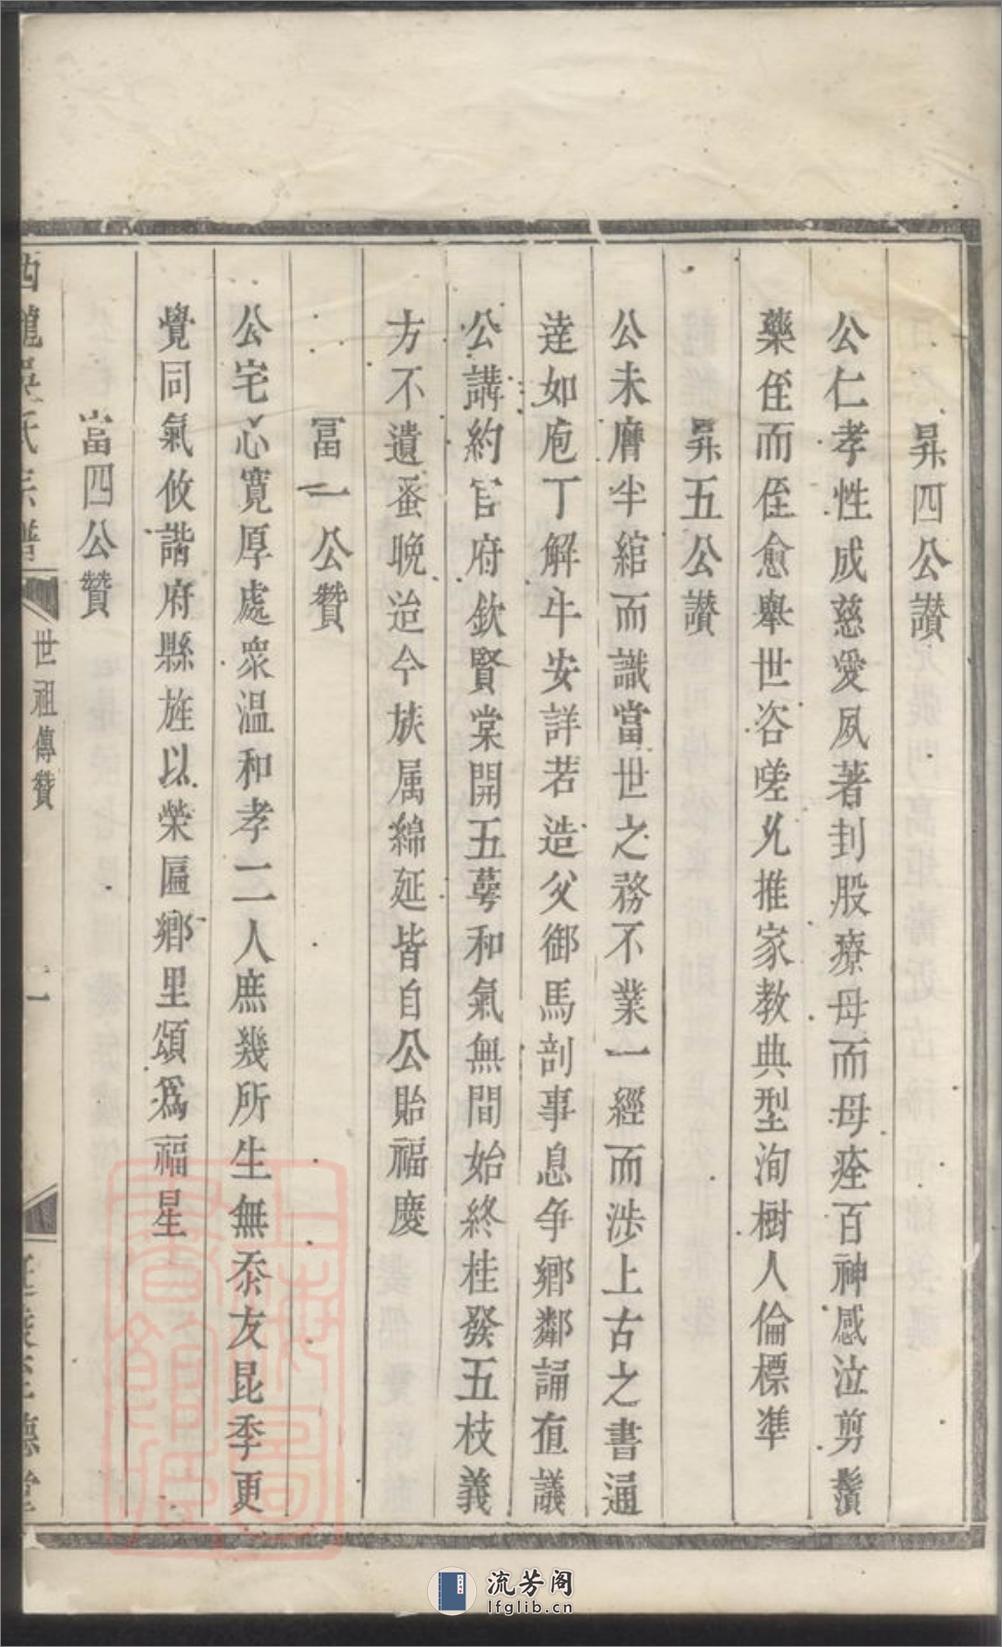 昇四公讃
公仁孝性成慈愛夙著刲股療母而母痊百神感泣剪鬚
藥侄而侄愈舉世咨嗟允推家教典型洵樹人倫標準
昇五公讃
公未膺半綰而識當世之務不業一經而涉上古之書通
逹如庖丁解牛安詳若造父御馬剖事息争鄉鄰誦直議
公講約官府欽賢棠開五萼和氣無間始終桂發五枝義
方不遺蚤晚迨今族属綿延皆自公貽福慶
冨一公贊
公宅心寛厚處衆温和孝二人庶幾所生無忝友昆季更
覺同氣攸諧府縣旌以榮匾鄉里頌爲福星
富四公贊
西龍吳氏宗譜
世祖傳贊
一
至德堂
上海圖書館藏
流芳阁
lfglib.cn